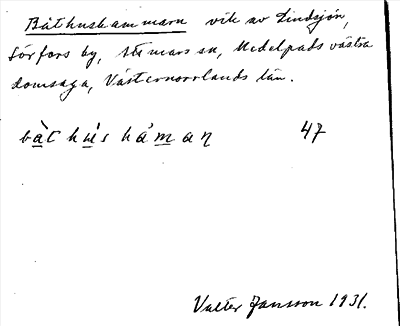 Båthuskammarn vik av Lindsjön,
Sörfors by, Attmars sn, Medelpads västra
domsaga, Västernorrlands län.
bàthu̇skȧman 47
Valter Jansson 1931.